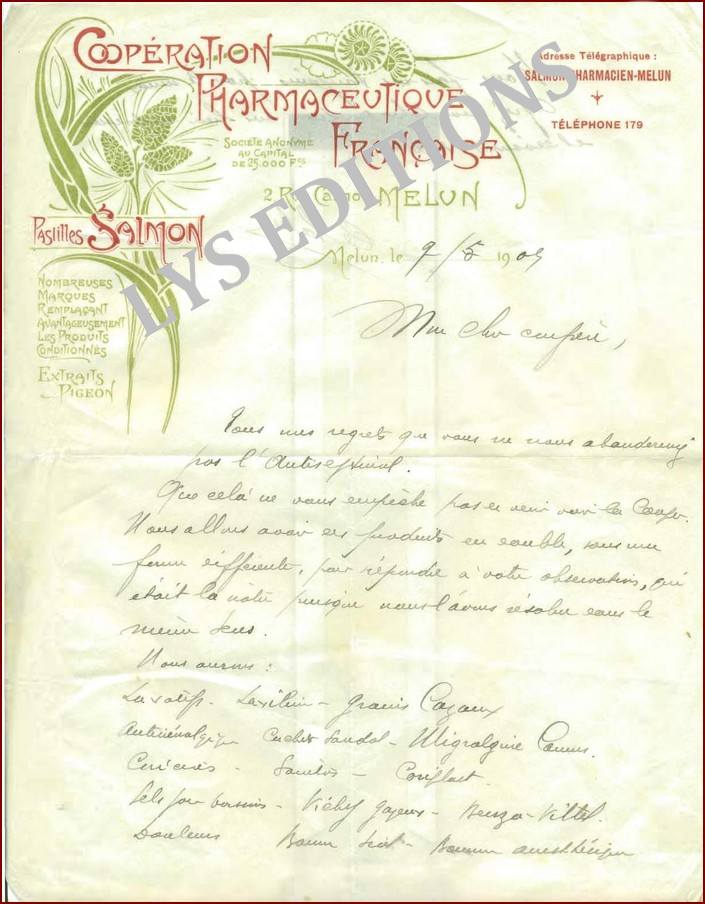 COOPÉRATION
PHARMACEUTIQUE
FRANÇAISE
SOCIÉTÉ ANONYME
AU CAPITAL
DE 25.000 Fcs
2 R Carnot MELUN
Adresse Télégraphique :
SALMON PHARMACIEN-MELUN
TÉLÉPHONE 179
Pastilles SALMON
NOMBREUSES
MARQUES
REMPLAÇANT
AVANTAGEUSEMENT
LES PRODUITS
CONDITIONNÉS
EXTRAITS
PIGEON
LYS EDITIONS
Melun, le 9/5 1905
Mon cher confrère,
Tous mes regrets que vous ne nous abandonniez
pas l'Antiseptinal.
Que celà ne vous empêche pas de venir voir la Coop.
Nous allons avoir des produits en double, sous une
forme différente, pour répondre à votre observation, qui
était la nôtre puisque nous l'avons résolu dans le
même sens.
Nous aurons :
Laxatifs - Grains Cazaux
Antinévralgique Cachet Sandol - Migralgine
Sels pour boissons - Vichy gazeux - Benzo-Vittel.
Douleurs Baume - Baume anesthésique